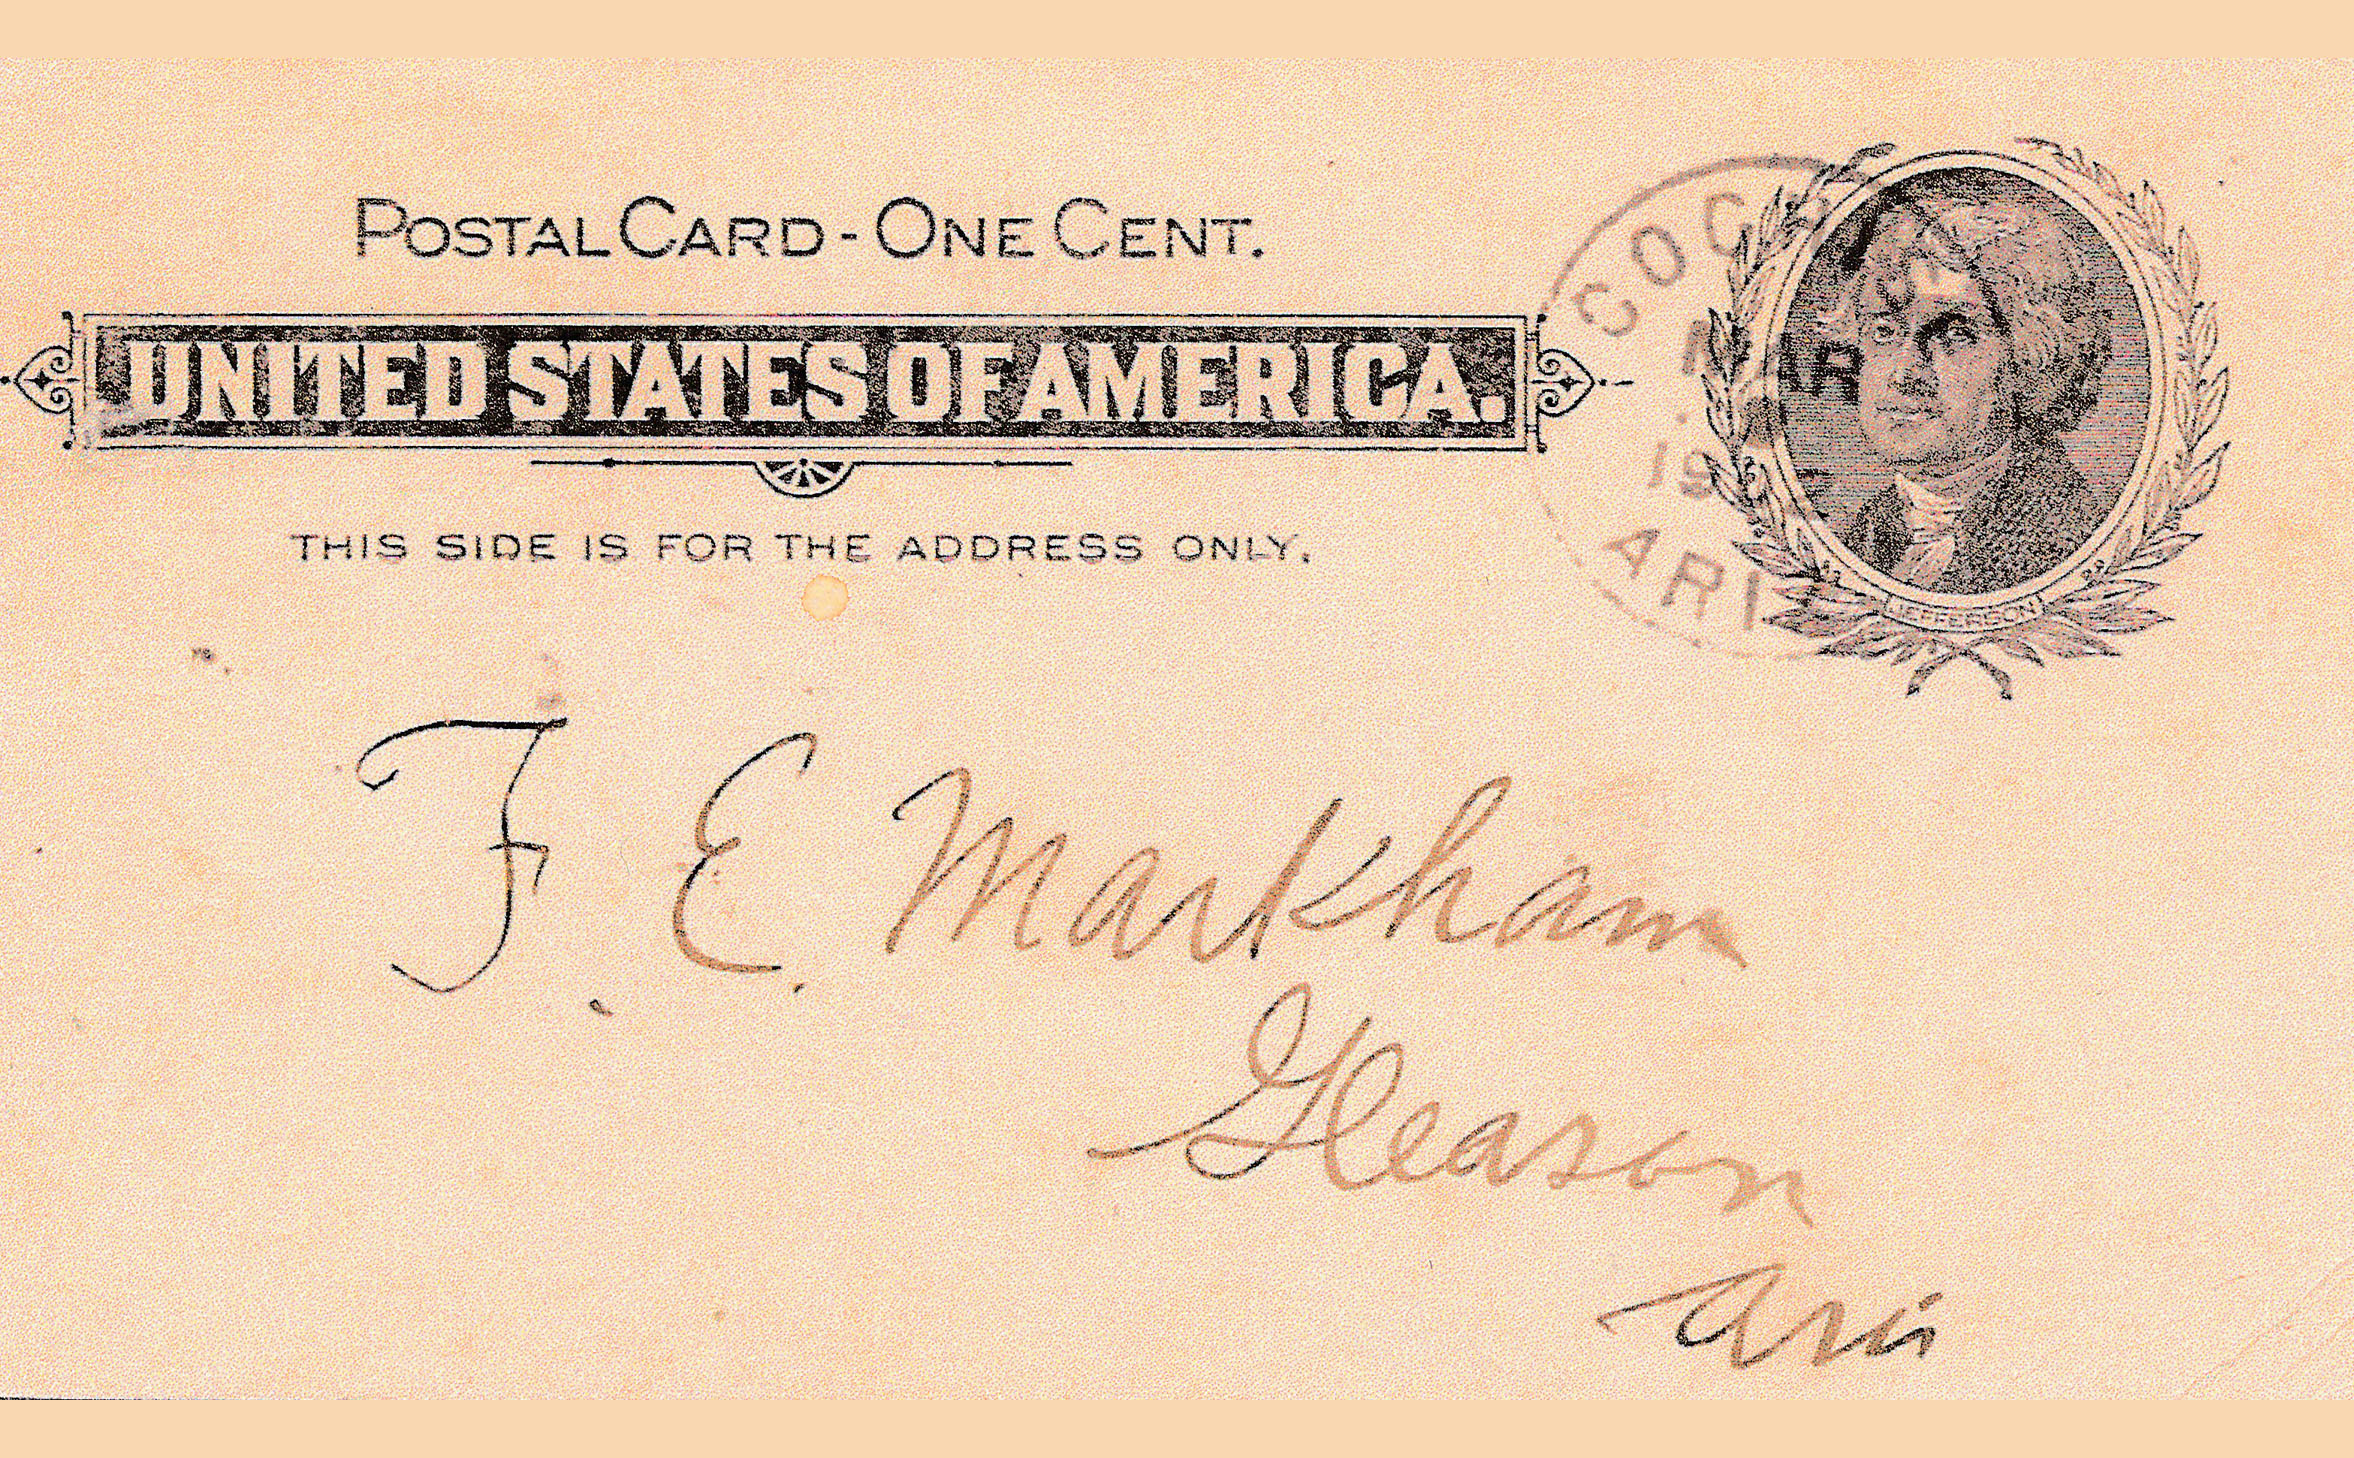 POSTAL CARD - ONE CENT.
UNITED STATES OF AMERICA.
THIS SIDE IS FOR THE ADDRESS ONLY.
MAR
19
ARI
JEFFERSON
F. E. Markham
Gleason
Ari